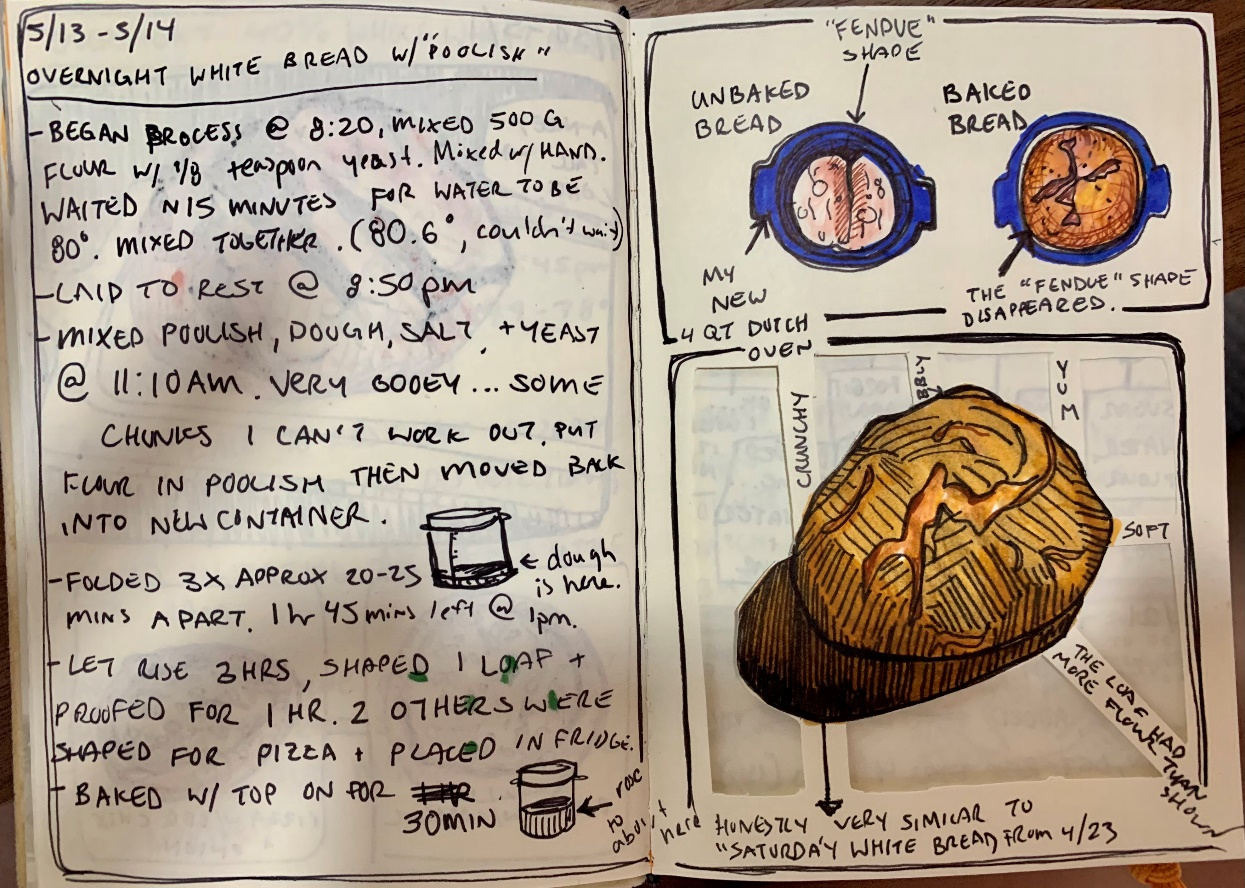 5/13 - 5/14
OVERNIGHT WHITE BREAD W/ "POOLISH"
- BEGAN PROCESS @ 8:20, MIXED 500 G
FLOUR W/ 1/8 teaspoon yeast. Mixed w/ HAND.
WAITED ~15 MINUTES FOR WATER TO BE
80°. MIXED TOGETHER. (80.6°, couldn't wait)
- LAID TO REST @ 8:50pm
- MIXED POOLISH, DOUGH, SALT, + YEAST
@ 11:10AM. VERY GOOEY... SOME
CHUNKS I CAN'T WORK OUT. PUT
FLOUR IN POOLISH THEN MOVED BACK
INTO NEW CONTAINER.
← dough
is here.
- FOLDED 3X APPROX 20-25
MINS APART. 1 hr 45 mins left @ 1pm.
- LET RISE 3HRS, SHAPED 1 LOAF +
PROOFED FOR 1 HR. 2 OTHERS WERE
SHAPED FOR PIZZA + PLACED IN FRIDGE.
- BAKED W/ TOP ON FOR
30MIN
rose
to
about
here
"FENDUE"
SHAPE
UNBAKED
BREAD
BAKED
BREAD
MY
NEW
4 QT DUTCH
OVEN
THE "FENDUE" SHAPE
DISAPPEARED.
CRUNCHY
YUM
SOFT
THE LOAF HAD
MORE FLOUR THAN
SHOWN
HONESTLY VERY SIMILAR TO
"SATURDAY WHITE BREAD FROM 4/23